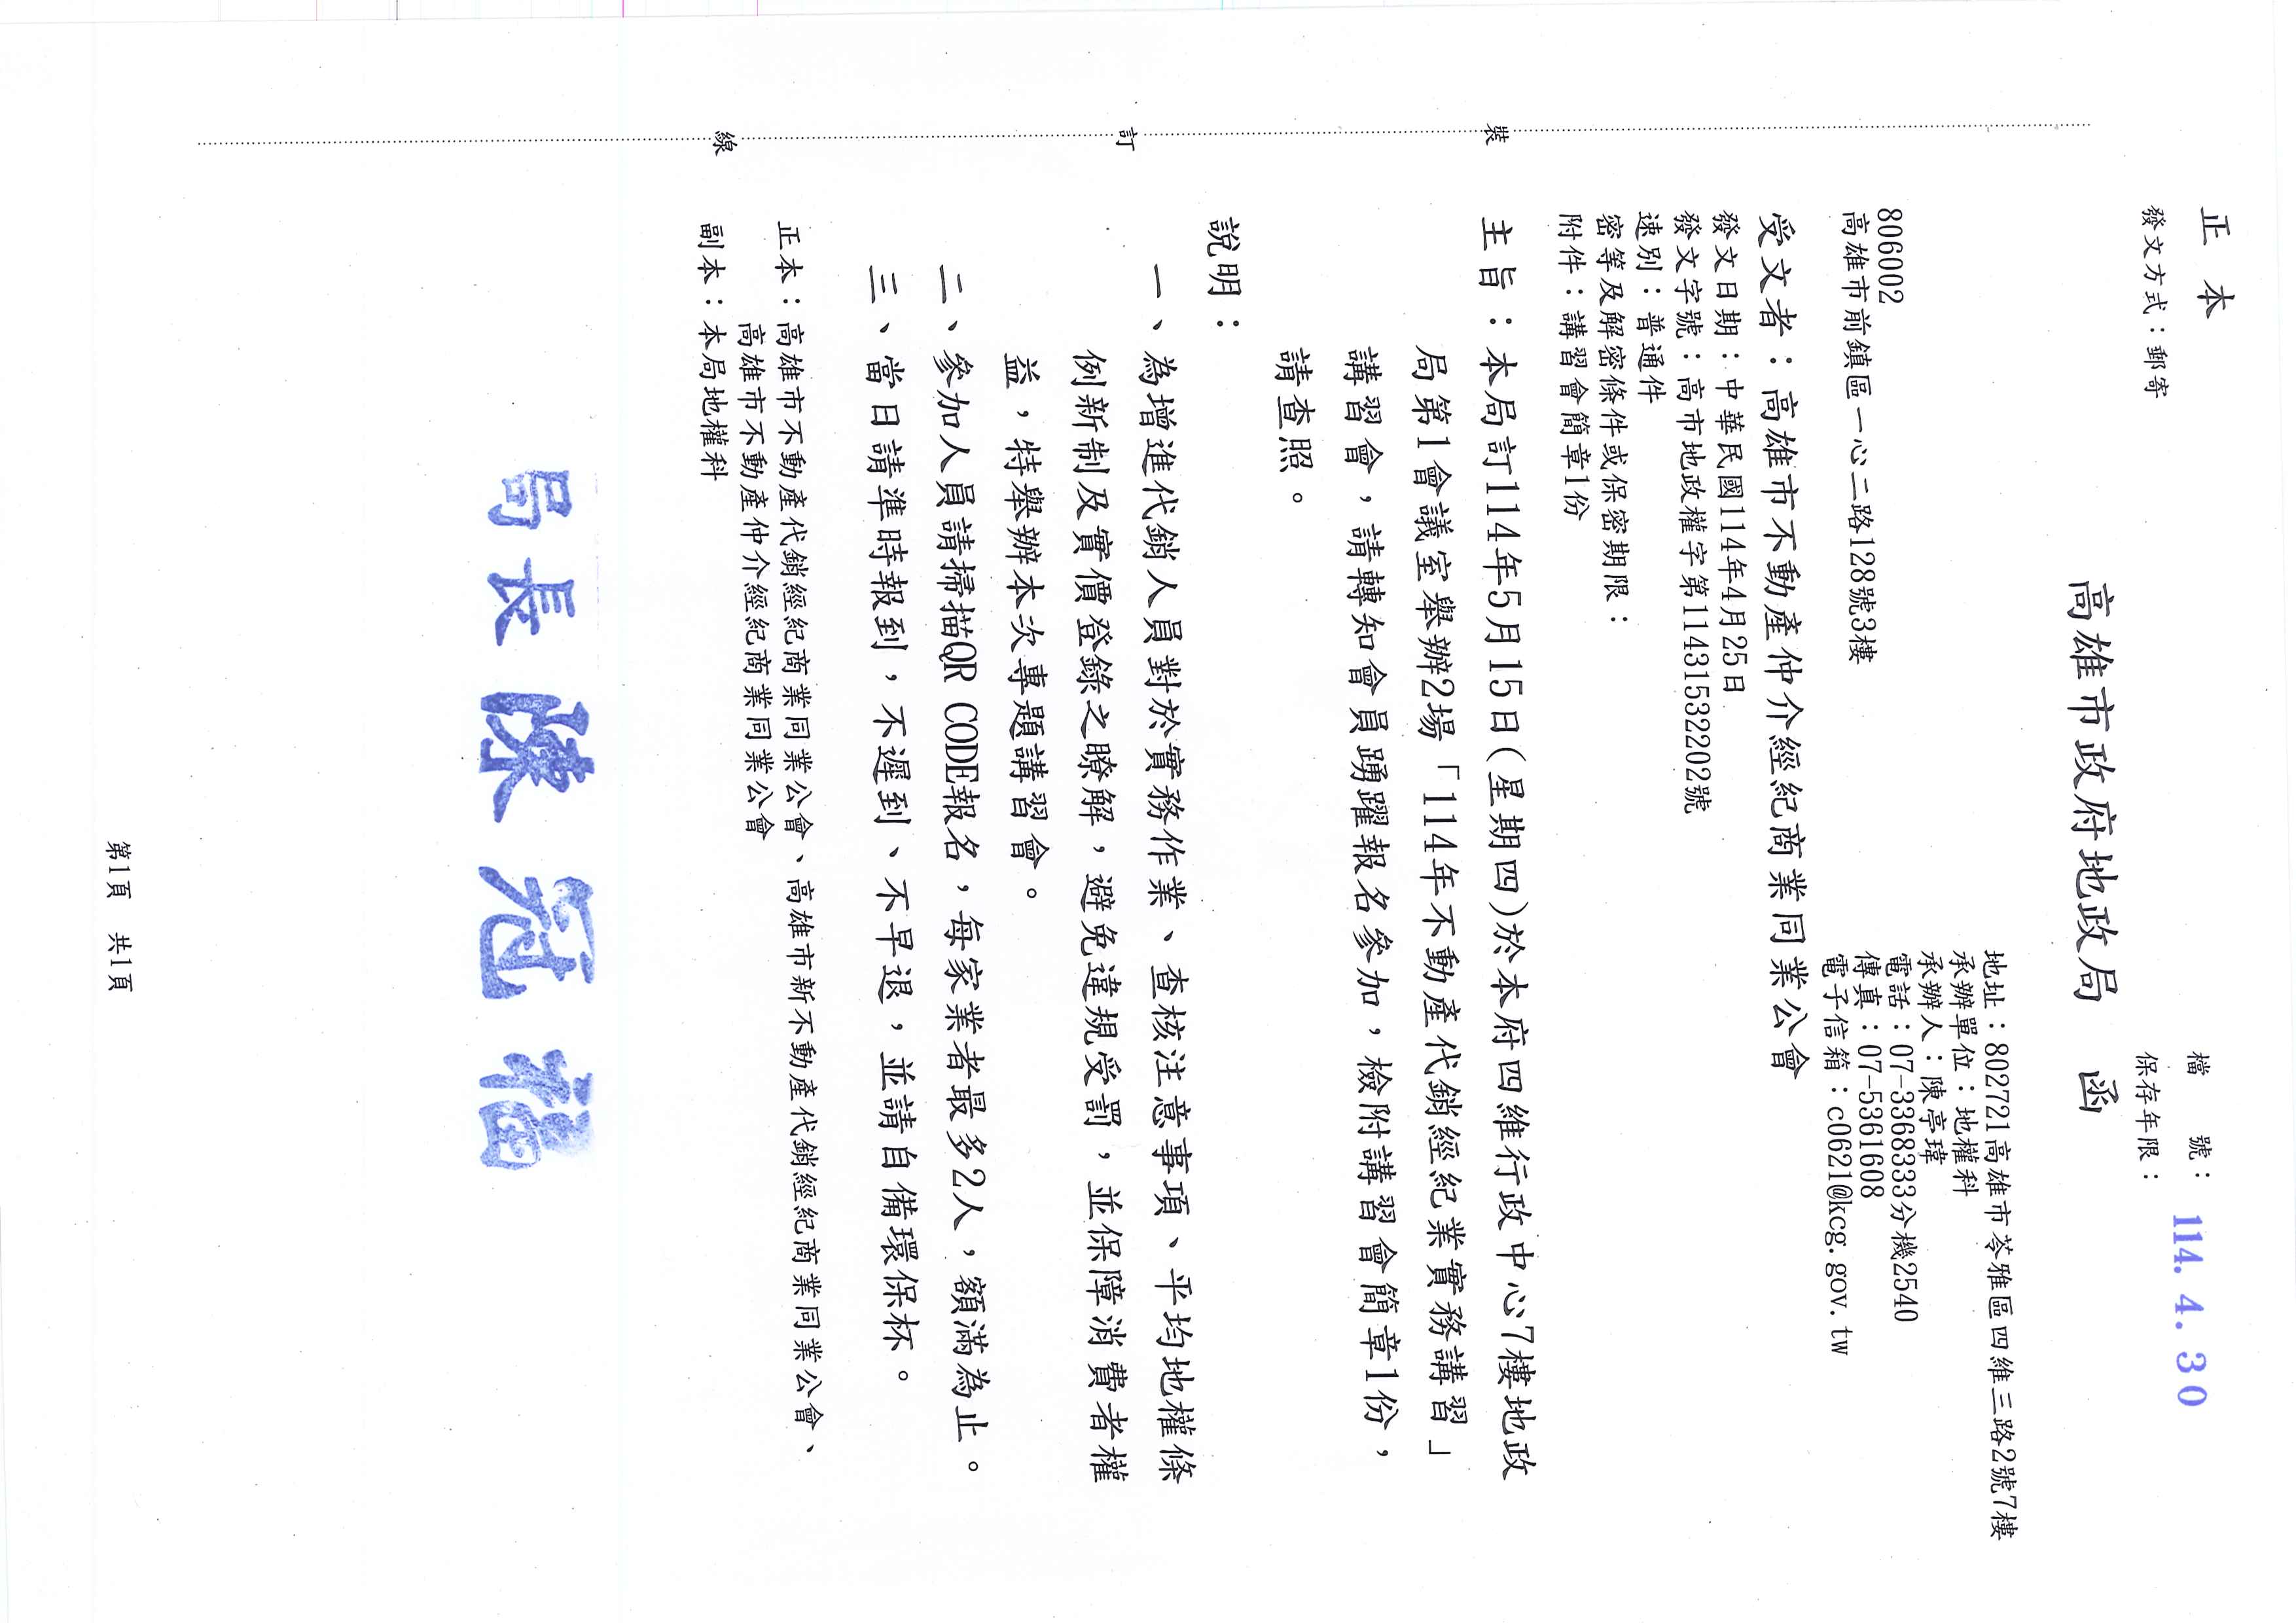 正本
發文方式：郵寄
檔　　號：
114. 4. 30
保存年限：
高雄市政府地政局　函
地址：802721高雄市苓雅區四維三路2號7樓
承辦單位：地權科
承辦人：陳亭瑋
電話：07-3368333分機2540
傳真：07-5361608
電子信箱：c0621@kcg.gov.tw
806002
高雄市前鎮區一心二路128號3樓
受文者：高雄市不動產仲介經紀商業同業公會
發文日期：中華民國114年4月25日
發文字號：高市地政權字第11431532202號
速別：普通件
密等及解密條件或保密期限：
附件：講習會簡章1份
主旨：本局訂114年5月15日(星期四)於本府四維行政中心7樓地政
局第1會議室舉辦2場「114年不動產代銷經紀業實務講習」
講習會，請轉知會員踴躍報名參加，檢附講習會簡章1份，
請查照。
說明：
一、為增進代銷人員對於實務作業、查核注意事項、平均地權條
例新制及實價登錄之瞭解，避免違規受罰，並保障消費者權
益，特舉辦本次專題講習會。
二、參加人員請掃描QR CODE報名，每家業者最多2人，額滿為止。
三、當日請準時報到，不遲到、不早退，並請自備環保杯。
正本：高雄市不動產代銷經紀商業同業公會、高雄市新不動產代銷經紀商業同業公會、
高雄市不動產仲介經紀商業同業公會
副本：本局地權科
局長 陳冠福
裝
訂
線
第1頁　共1頁